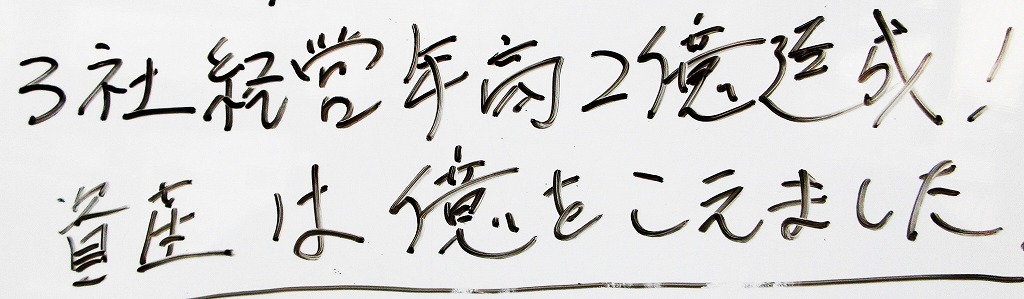 3社経営年商2億達成!
資産は億をこえました